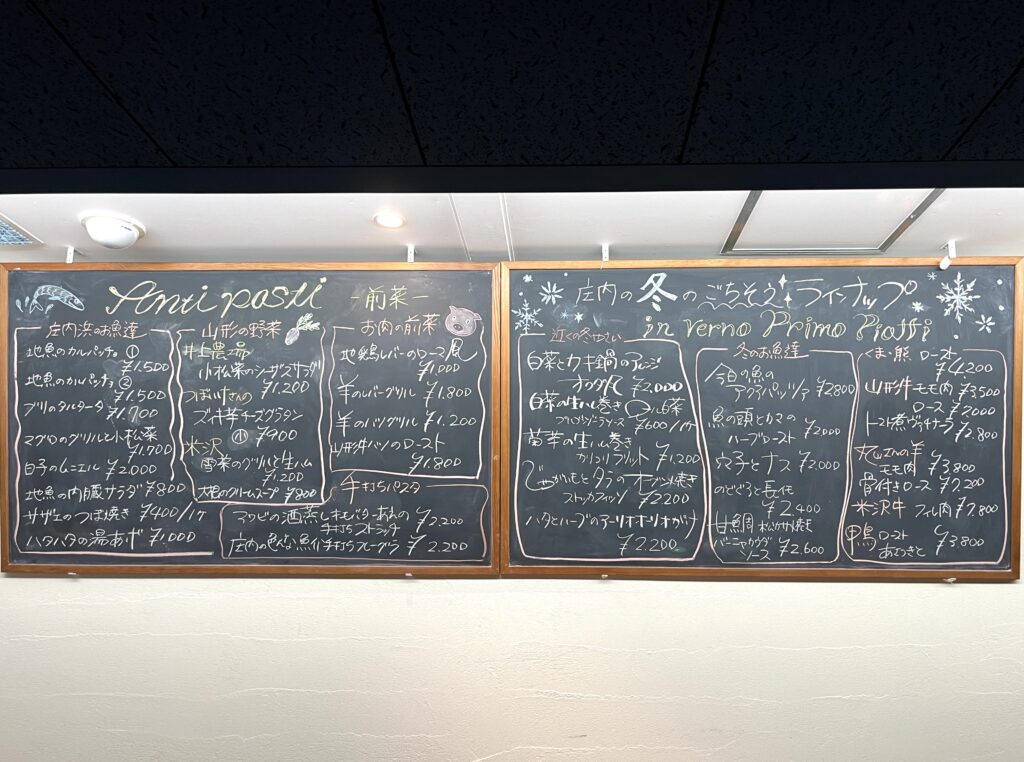 Anti pasti -前菜-
庄内浜のお魚達
地魚のカルパッチョ ①
¥1.500
地魚のカルパッチョ ②
¥1.500
ブリのタルタータ
¥1.700
マグロのグリルと小松菜
¥1.700
白子のムニエル ¥2.000
地魚の内臓サラダ ¥800
サザエのつぼ焼き ¥400/1ケ
ハタハタの湯あげ ¥1.000
山形の野菜
井上農場
小松菜のシーザーサラダ
¥1.200
つば川さんの
ズイキ芋チーズグラタン
小 ¥900
米沢
雪菜のグリルと生ハム
¥1.200
大根のクリームスープ ¥800
お肉の前菜
地鶏レバーのロースト風
¥1.000
羊のレバーグリル ¥1.800
羊のハツグリル ¥1.200
山形牛ハツのロースト
¥1.800
手打ちパスタ
アワビの酒蒸し 肝バターあえの
手打ち ¥2.200
庄内の色々な魚介 手打ち ¥2.200
庄内の冬のごちそう ラインナップ
in verno Primo Piatti
白菜とカキ鍋のアレンジ
¥2000
白菜の生ハム巻き ロール白菜
¥600/1ケ
苗芋の生ハム巻き
カリコリフリット ¥1.200
じゃがいもとタラのオーブン焼き
ストッカフィッソ ¥2200
ハタとハーブのアーリオオーリオ
¥2.200
冬のお魚達
今日の魚の
アクアパッツァ ¥2800
魚の頭とカマの
ハーブロースト ¥2000
穴子とナス ¥2.000
のどぐろと長芋
¥2.400
甘鯛 松カサ焼き
バーニャカウダ
ソース ¥2.600
くま・熊 ロースト
¥4200
山形牛 モモ肉 ¥3500
ロース ¥2000
トマト煮 ¥2.800
丸山さんの羊
モモ肉 ¥3800
骨付きロース ¥2200
米沢牛 フィレ肉 ¥7.800
鴨 ロースト ¥3800